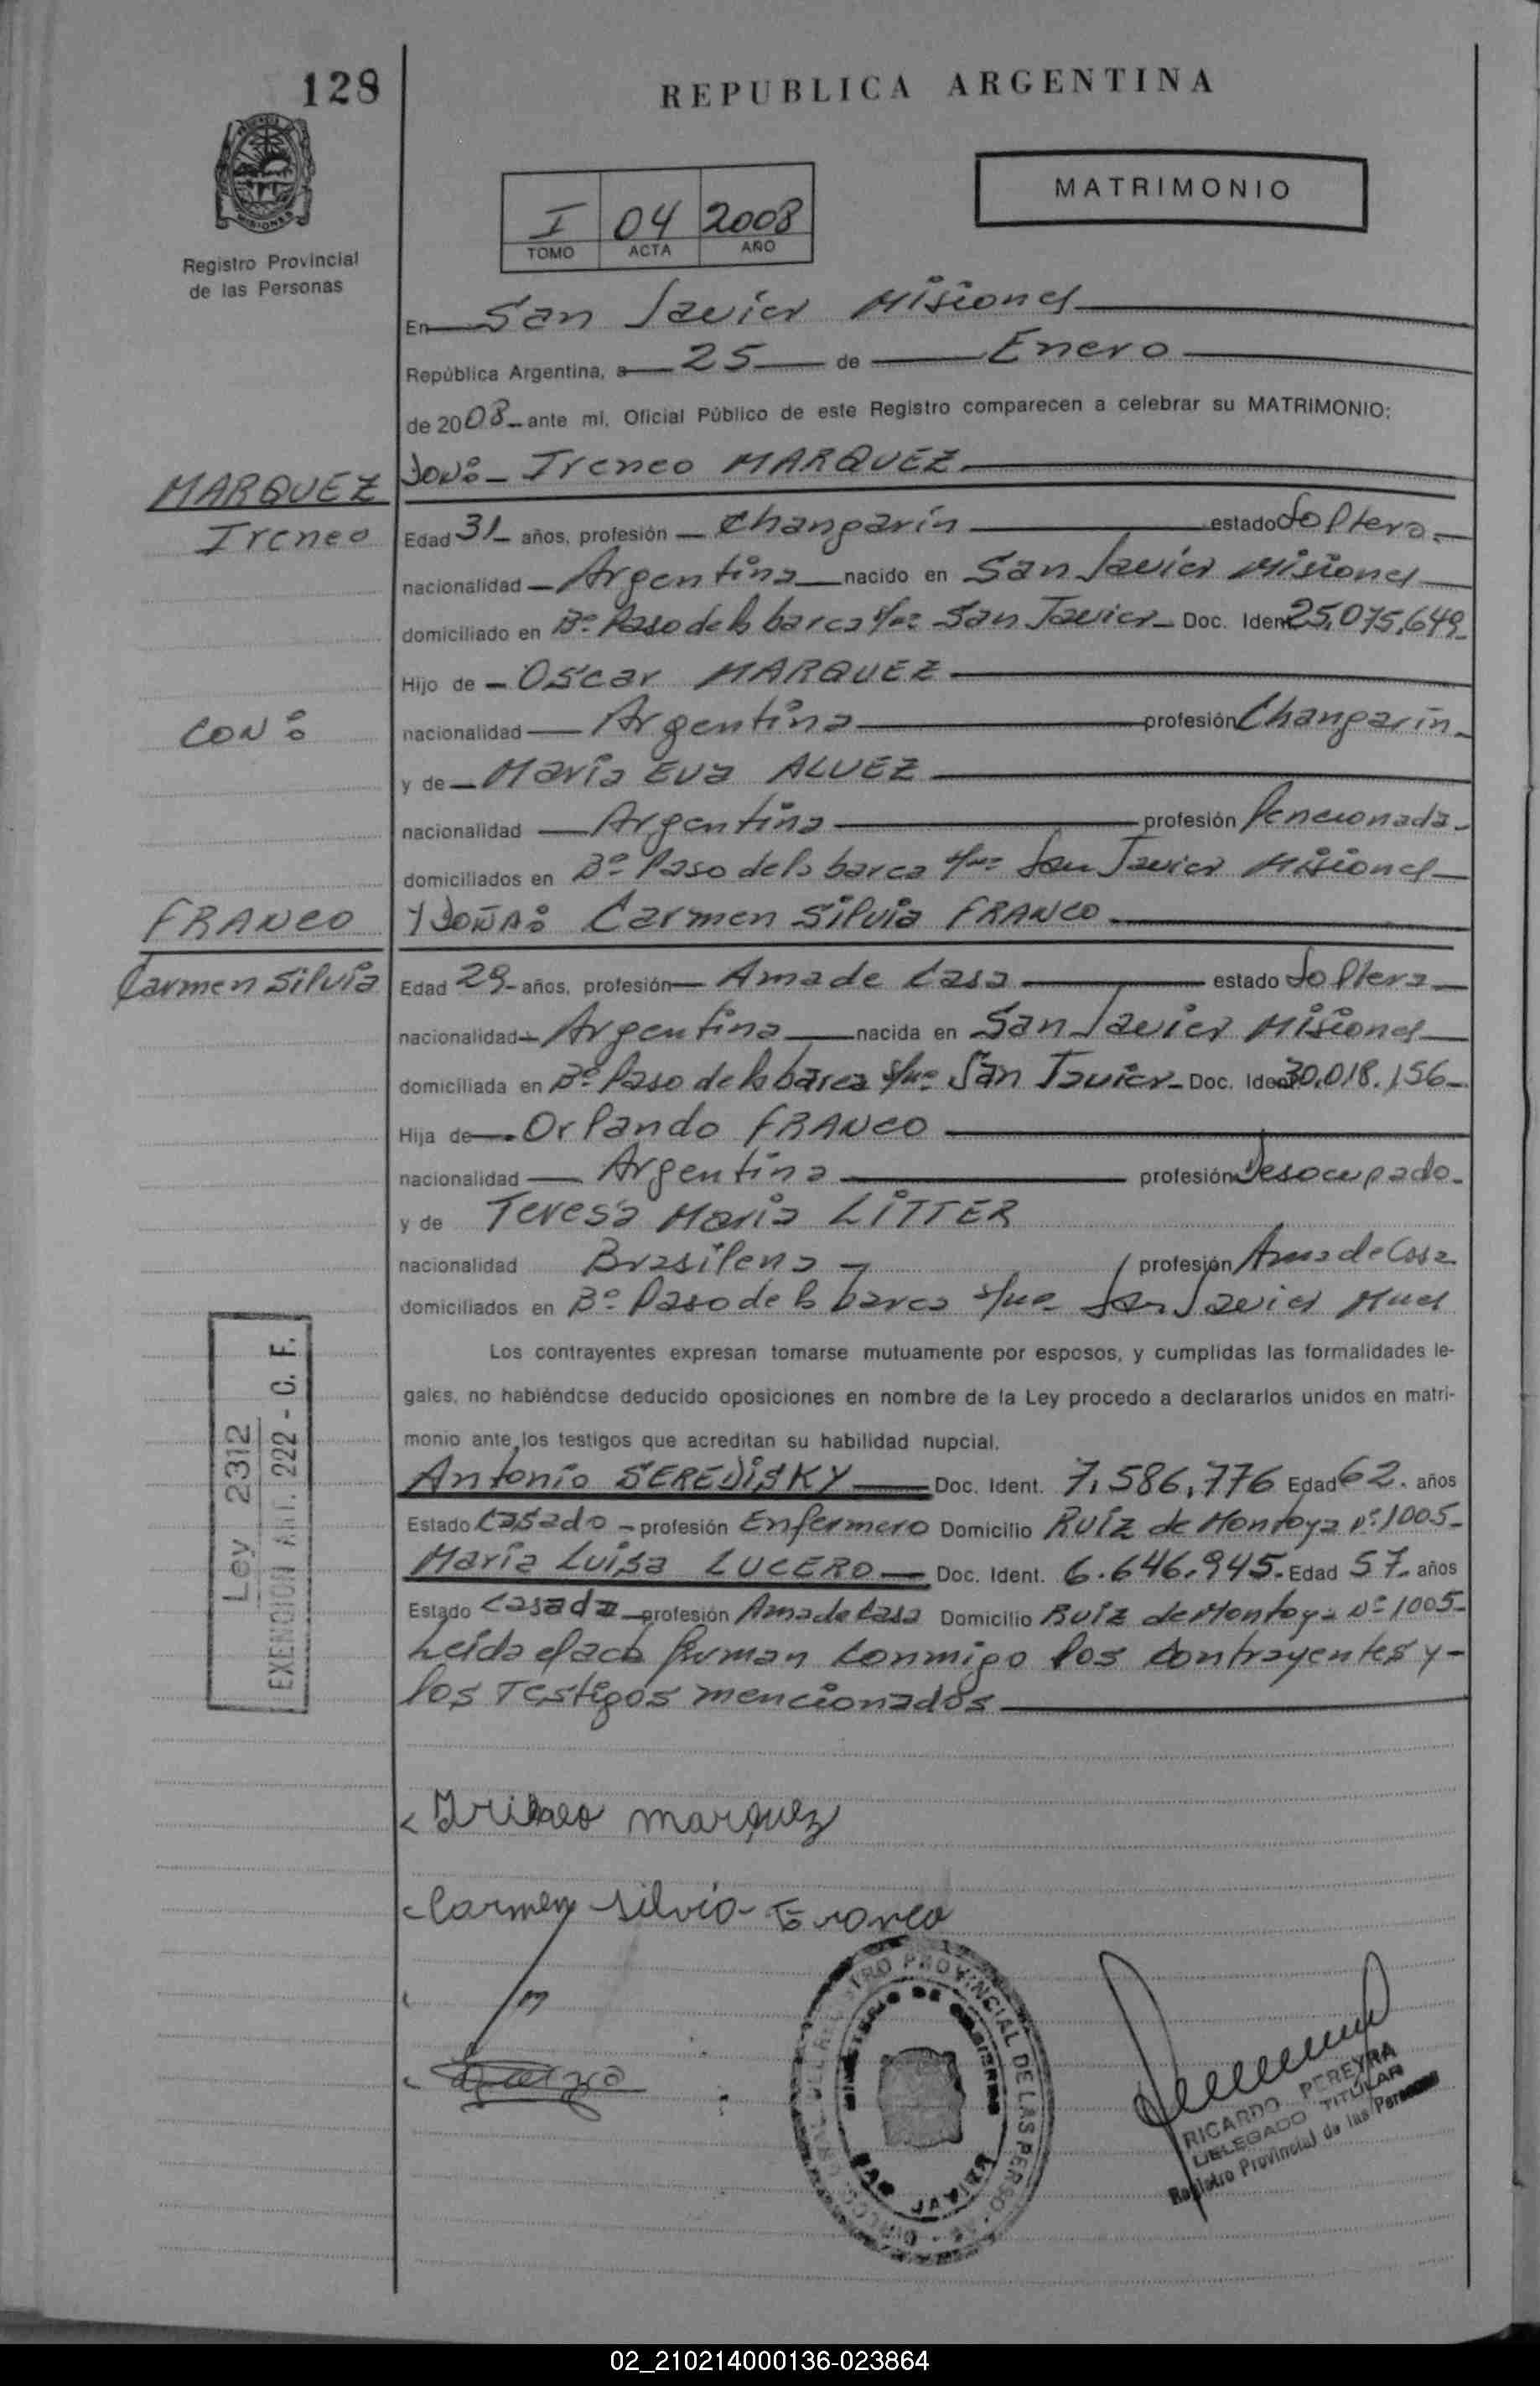 128
REPUBLICA ARGENTINA
MISIONES
Registro Provincial
de las Personas
I 04 2008
TOMO ACTA AÑO
MATRIMONIO
En San Javier Misiones
República Argentina, a 25 de Enero
de 2008 ante mí, Oficial Público de este Registro comparecen a celebrar su MATRIMONIO:
MARQUEZ
Ireneo
DON: Ireneo MARQUEZ
Edad 31 años, profesión Changarín estado Soltero
nacionalidad Argentina nacido en San Javier Misiones
domiciliado en Bº Paso de la barca s/nº San Javier Doc. Ident 25.075.649
Hijo de Oscar MARQUEZ
CON:
nacionalidad Argentina profesión Changarín
y de María Eva ALVEZ
nacionalidad Argentina profesión Pencionada
domiciliados en Bº Paso de la barca s/nº San Javier Misiones
FRANCO
Carmen Silvia
Y DOÑA: Carmen Silvia FRANCO
Edad 29 años, profesión Ama de Casa estado Soltera
nacionalidad Argentina nacida en San Javier Misiones
domiciliada en Bº Paso de la barca s/nº San Javier Doc. Ident 30.018.156
Hija de Orlando FRANCO
nacionalidad Argentina profesión Desocupado
y de Teresa María LITTER
nacionalidad Brasilena profesión Ama de Casa
domiciliados en Bº Paso de la barca s/nº San Javier Mnes
Los contrayentes expresan tomarse mutuamente por esposos, y cumplidas las formalidades le-
gales, no habiéndose deducido oposiciones en nombre de la Ley procedo a declararlos unidos en matri-
monio ante los testigos que acreditan su habilidad nupcial.
Antonio SEREDISKY Doc. Ident. 7.586.776 Edad 62. años
Estado Casado profesión Enfermero Domicilio Ruíz de Montoya nº 1005
María Luisa LUCERO Doc. Ident. 6.646.945 Edad 57. años
Estado Casada profesión Ama de Casa Domicilio Ruíz de Montoya Nº 1005
Leída el acta firman conmigo los contrayentes y
los Testigos mencionados
Ley 2312
EXENCION ART. 222 - C. F.
Irineo marquez
Carmen silvia Franco
REGISTRO PROVINCIAL DE LAS PERSO
MINISTERIO DE GOBIERNO
SAN JAVIER
RICARDO PEREYRA
DELEGADO TITULAR
Registro Provincial de las Personas
02_210214000136-023864